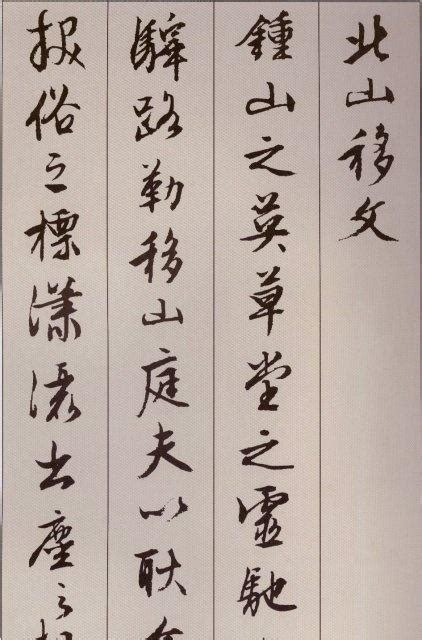 北山移文
鍾山之英草堂之靈馳
驛路勒移山庭夫以耿
拔俗之標瀟灑出塵之